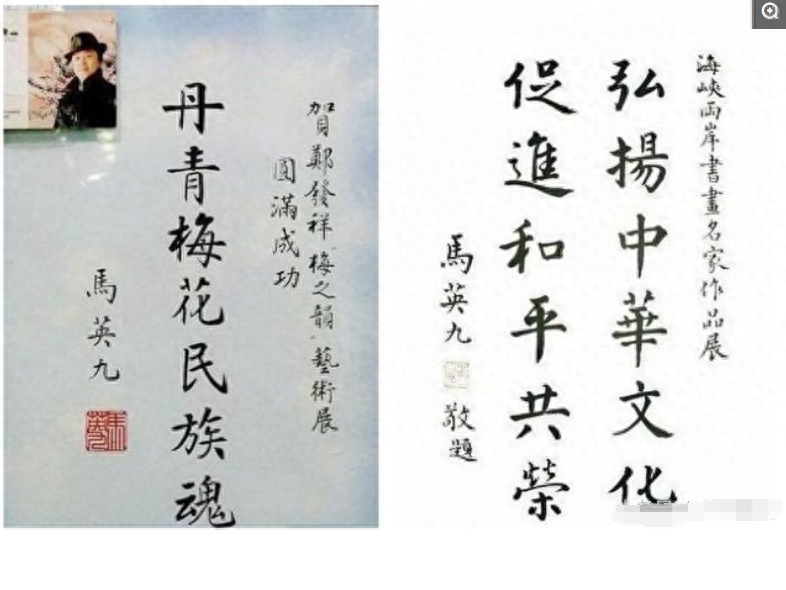 賀鄭發祥"梅之韻"藝術展
圓滿成功
丹青梅花民族魂
馬英九
海峽兩岸書畫名家作品展
弘揚中華文化
促進和平共榮
馬英九
敬題